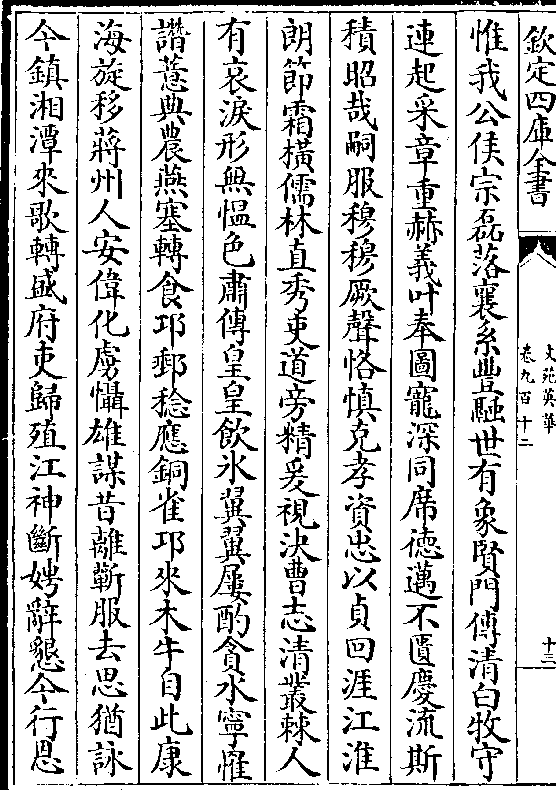 欽定四庫全書
文苑英華
卷九百十二
十三
惟我公侯宗磊落襄系豐駈世有象賢門傳清白牧守
連起采章重赫義叶奉圖寵深同席德邁不匱慶流斯
積昭哉嗣服穆穆厥聲恪慎克孝資忠以貞回涯江淮
朗節霜横儒林直秀吏道旁精爰視決曹志清叢棘人
有哀淚形無愠色肅傳皇皇飲氷翼翼屢酌貪水寧罹
譖薏典農燕塞轉食卭郵稔應銅雀卭來木牛自此康
海旋移蔣州人安偉化虜懾雄謀昔離蘄服去思猶詠
今鎮湘潭來歌轉盛府吏歸殖江神斷娉辭懇今行恩